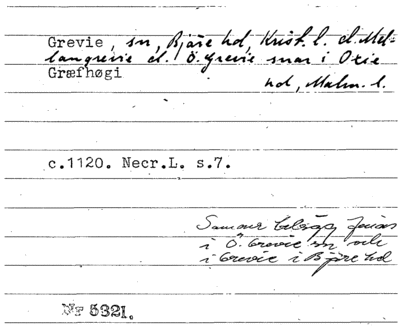 Grevie, sn, Bjäre hd, Krist. l. el. Mel-
langrevie el. Ö. Grevie snar i Oxie
Græfhøgi hd, Malm. l.
c.1120. Necr.L. s.7.
Samme belägg
i Ö. Grevie sn och
i Grevie i Bjäre hd
Nr 5321.